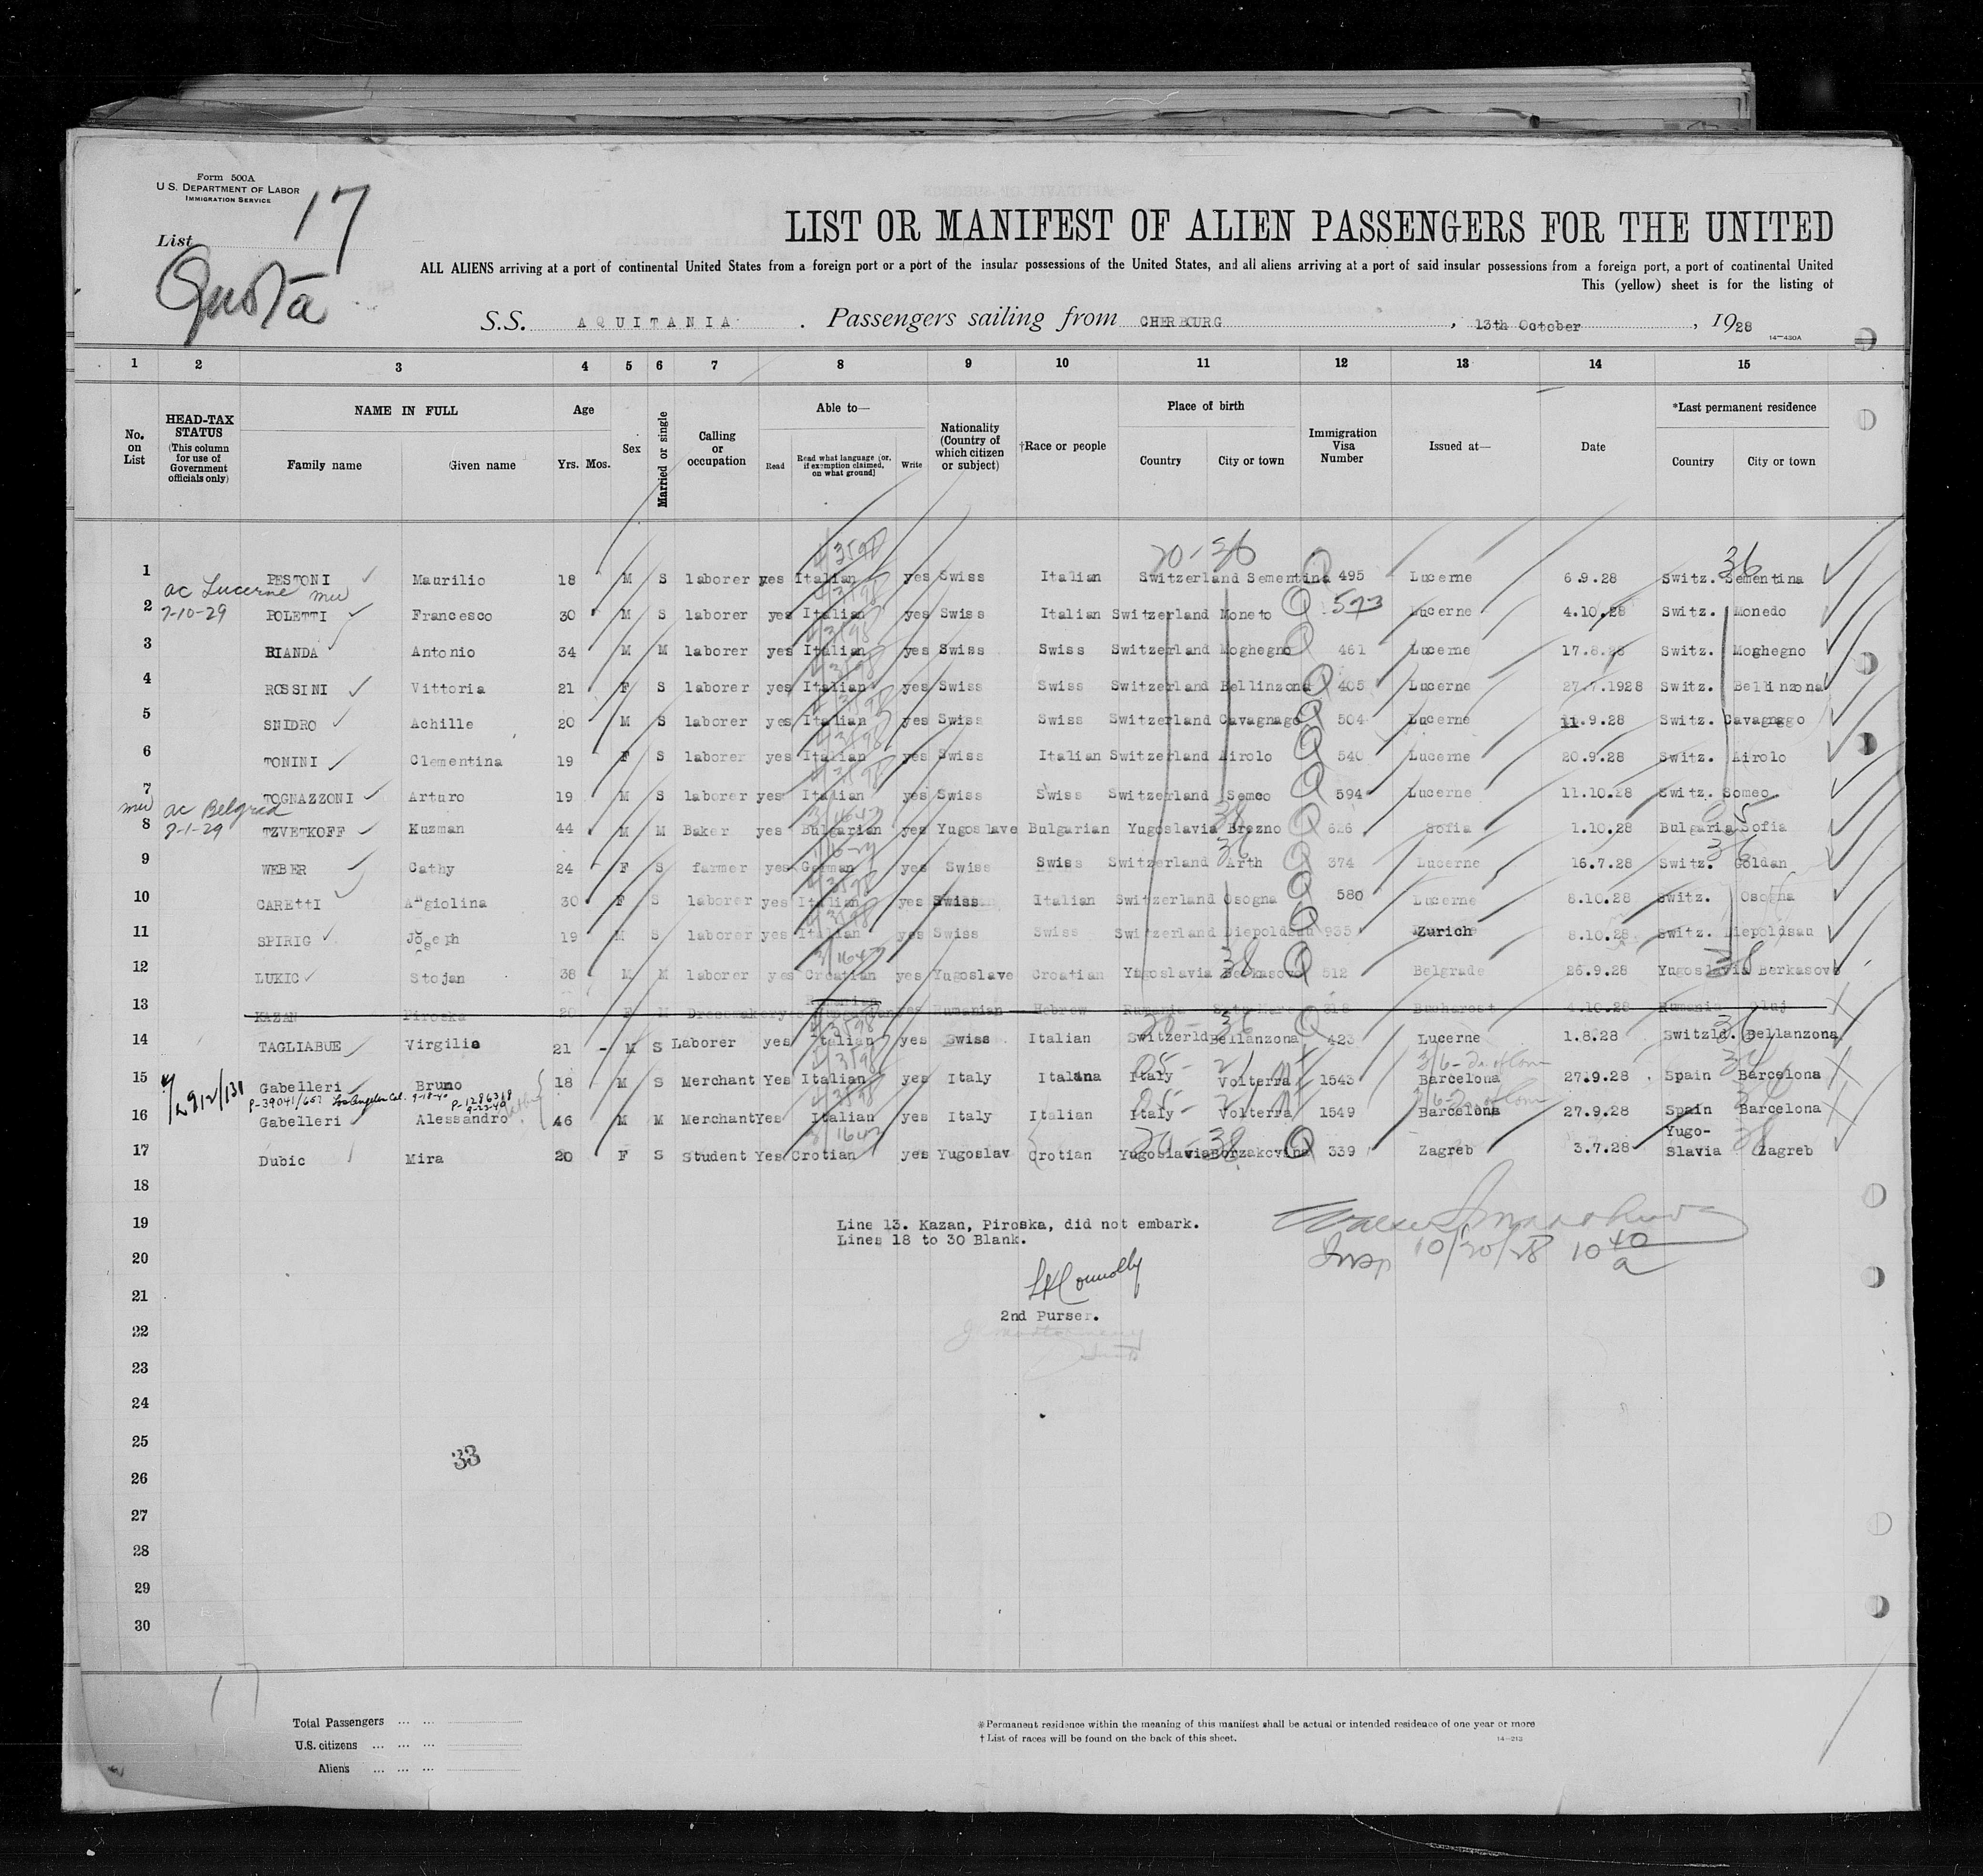 Form 500A
U.S. DEPARTMENT OF LABOR
IMMIGRATION SERVICE
List 17
Quota
LIST OR MANIFEST OF ALIEN PASSENGERS FOR THE UNITED
ALL ALIENS arriving at a port of continental United States from a foreign port or a port of the insular possessions of the United States, and all aliens arriving at a port of said insular possessions from a foreign port, a port of continental United
This (yellow) sheet is for the listing of
S.S. AQUITANIA. Passengers sailing from CHERBOURG, 13th October, 1928
14—430A
1 2 3 4 5 6 7 8 9 10 11 12 13 14 15
No. on List
HEAD-TAX STATUS (This column for use of Government officials only)
NAME IN FULL
Family name Given name
Age
Yrs. Mos.
Sex
Married or single
Calling or occupation
Able to—
Read
Read what language (or, if exemption claimed, on what ground)
Write
Nationality (Country of which citizen or subject)
†Race or people
Place of birth
Country City or town
Immigration Visa Number
Issued at—
Date
*Last permanent residence
Country City or town
20-36 36
1 PESTONI Maurilio 18 M S laborer yes Italian yes Swiss Italian Switzerland Sementina Q 495 Lucerne 6.9.28 Switz. Sementina
ac Lucerne
7-10-29
2 POLETTI Francesco 30 M S laborer yes Italian yes Swiss Italian Switzerland Moneto Q 573 Lucerne 4.10.28 Switz. Monedo
3 BIANDA Antonio 34 M M laborer yes Italian yes Swiss Swiss Switzerland Moghegno Q 461 Lucerne 17.8.28 Switz. Moghegno
4 ROSSINI Vittoria 21 F S laborer yes Italian yes Swiss Swiss Switzerland Bellinzona Q 405 Lucerne 27.7.1928 Switz. Bellinzona
5 SNIDRO Achille 20 M S laborer yes Italian yes Swiss Swiss Switzerland Cavagnago Q 504 Lucerne 11.9.28 Switz. Cavagnago
6 TONINI Clementina 19 F S laborer yes Italian yes Swiss Italian Switzerland Airolo Q 540 Lucerne 20.9.28 Switz. Airolo
7 TOGNAZZONI Arturo 19 M S laborer yes Italian yes Swiss Swiss Switzerland Semeo Q 594 Lucerne 11.10.28 Switz. Someo
ac Belgrad
7-1-29
8 TZVETKOFF Kuzman 44 M M Baker yes Bulgarian yes Yugoslave Bulgarian Yugoslavia Brezno Q 626 Sofia 1.10.28 Bulgaria Sofia
9 WEBER Cathy 24 F S farmer yes German yes Swiss Swiss Switzerland Arth Q 374 Lucerne 16.7.28 Switz. Goldan
10 CARETTI Angiolina 30 F S laborer yes Italian yes Swiss Italian Switzerland Osogna Q 580 Lucerne 8.10.28 Switz. Osogna
11 SPIRIG Joseph 19 M S laborer yes Italian yes Swiss Swiss Switzerland Diepoldsau Q 935 Zurich 8.10.28 Switz. Diepoldsau
12 LUKIC Stojan 38 M M laborer yes Croatian yes Yugoslave Croatian Yugoslavia Berkasovo Q 512 Belgrade 26.9.28 Yugoslavia Berkasovo
13 KAZAN Piroska 20 F M Dressmaker yes yes Rumanian Hebrew Rumania Satu Mare 318 Bucharest 4.10.28 Rumania Cluj
14 TAGLIABUE Virgilio 21 - M S Laborer yes Italian yes Swiss Italian Switzerld Bellanzona Q 423 Lucerne 1.8.28 Switzld. Bellanzona
15 Gabelleri Bruno 18 M S Merchant Yes Italian yes Italy Italana Italy Volterra 1543 Barcelona 27.9.28 Spain Barcelona
P-39041/657 Los Angeles Cal. 9-18-40 P-1286318 9-22-40
16 Gabelleri Alessandro 46 M M Merchant Yes Italian yes Italy Italian Italy Volterra 1549 Barcelona 27.9.28 Spain Barcelona
17 Dubic Mira 20 F S Student Yes Crotian yes Yugoslav Crotian Yugoslavia Borzakovina Q 339 Zagreb 3.7.28 Yugo-Slavia Zagreb
18
19 Line 13. Kazan, Piroska, did not embark.
Lines 18 to 30 Blank.
Insp 10/20/28 10 40 a
20
21
2nd Purser.
22
23
24
25
33
26
27
28
29
30
17
Total Passengers ... ...
U.S. citizens ... ... ...
Aliens ... ... ...
*Permanent residence within the meaning of this manifest shall be actual or intended residence of one year or more
†List of races will be found on the back of this sheet.
14—213